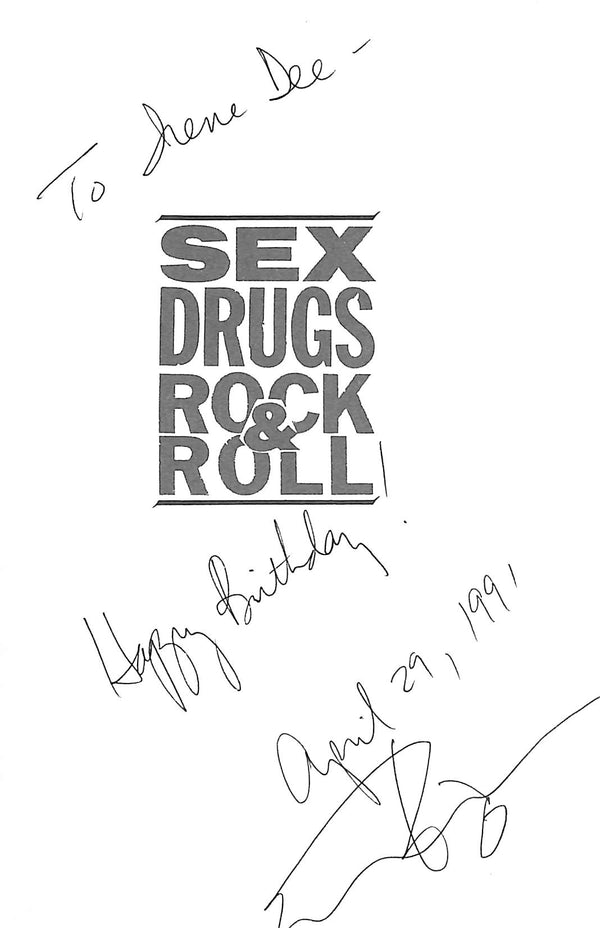 To Irene Dee -
SEX
DRUGS
ROCK
&
ROLL
Happy Birthday!
April 29, 1991